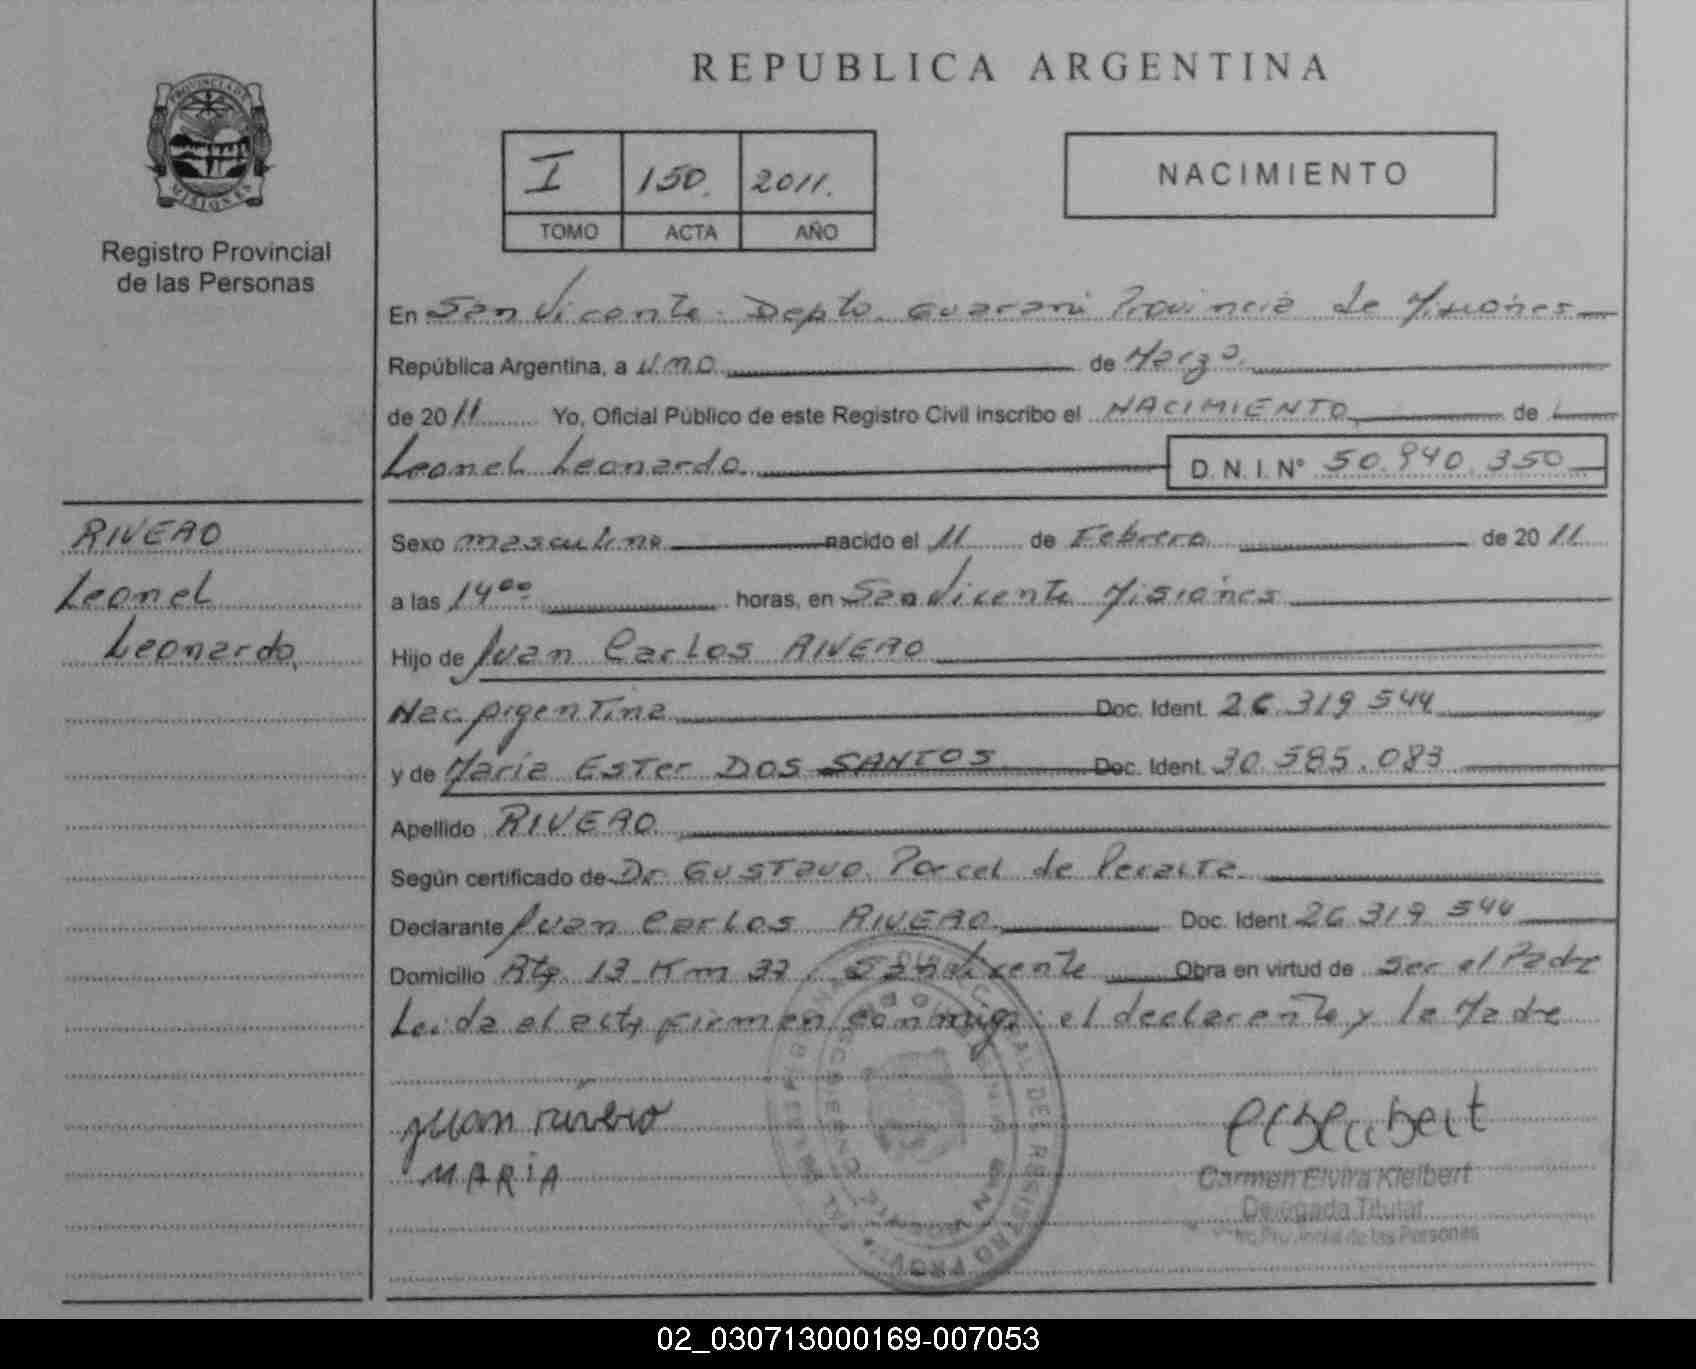 REPUBLICA ARGENTINA
PROVINCIA DE
MISIONES
Registro Provincial
de las Personas
I 150. 2011.
TOMO ACTA AÑO
NACIMIENTO
En San Vicente Depto. Guarani Provincia de Misiones
República Argentina, a uno de Marzo
de 2011 Yo, Oficial Público de este Registro Civil inscribo el NACIMIENTO de
Leonel Leonardo D. N. I. N° 50.940.350
RIVERO
Leonel
Leonardo
Sexo masculino nacido el 11 de Febrero de 2011
a las 14⁰⁰ horas, en San Vicente Misiones
Hijo de Juan Carlos RIVERO
Nac. Argentina Doc. Ident. 26 319 544
y de Maria Ester DOS SANTOS Doc. Ident. 30.585.083
Apellido RIVERO
Según certificado de Dr Gustavo Porcel de Peralta
Declarante Juan Carlos RIVERO Doc. Ident. 26 319 544
Domicilio Rta 13 Km 33 San Vicente Obra en virtud de Ser el Padre
Leida el acta firman conmigo el declarante y la Madre
juan rivero
MARIA
Carmen Elvira Kleibert
Delegada Titular
de las Personas
02_030713000169-007053